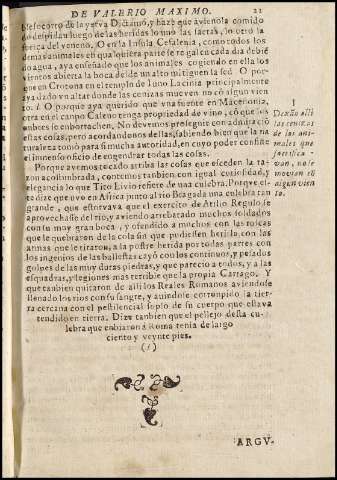 DE VALERIO MAXIMO. 21
ble socorro de la yerva Dictamo, y haze que aviendola comido
do despidan luego de las heridas lo uno las saetas, lo otro la
fuerça del veneno. O en la Insula Cefalenia, como todos los
demas animales en qualquiera parte se regalen cada dia bebié
do agua, aya enseñado que los animales cogiendo en ella los
vientos abierta la boca desde un alto mitiguen la sed? O por-
que en Crotona en el templo de Iuno Lacinia principalmente
aya dado vn altar donde las cenizas mueven no có algun vien
to.? O porque aya querido que vna fuente en Macedonia,
otra en el campo Caleno tenga propriedad de vino, có que los
ombres se emborrachen. No devemos proseguir con admiració
estas cosas, pero acordandonos dellas, sabiendo bien que la na
turaleza tomó para si mucha autoridad, en cuyo poder consiste
el immenso oficio de engendrar todas las cosas.
Porque avemos tocado arriba las cosas que esceden la ra-
zon acostumbrada, contemos tanbien con igual curiosidad, y
elegancia lo que Tito Livio refiere de una culebra. Porque es-
te dize que uvo en Africa junto al rio Bagada una culebra tan
grande, que estorvava que el exercito de Atilio Regulo se
aprovechasse del rio, y aviendo arrebatado muchos soldados
con su muy gran boca, y ofendido a muchos con las roscas
que le quebraron de la cola sin que pudiessen herilla con las
armas que le tiraron, a la postre herida por todas partes con
los ingenios de las ballestas cayó con los continuos, y pesados
golpes de las muy duras piedras, y que parecio a todos, y a las
esquadras, y legiones mas terrible que la propia Cartago. Y
que tanbien quitaron de alli los Reales Romanos aviendose
llenado los rios con su sangre, y aviendose corronpido la tier-
ra cercana con el pestilencial soplo de su cuerpo que estava
tendido en tierra. Dize tanbien que el pellejo desta cu-
lebra que enbiaron a Roma tenia de largo
ciento y veynte pies.
(?)
1
Dexáo allí
las cenizas
de los ani-
males que
sacrifica-
van, no se
movian có
algun vien
to.
ARGV-